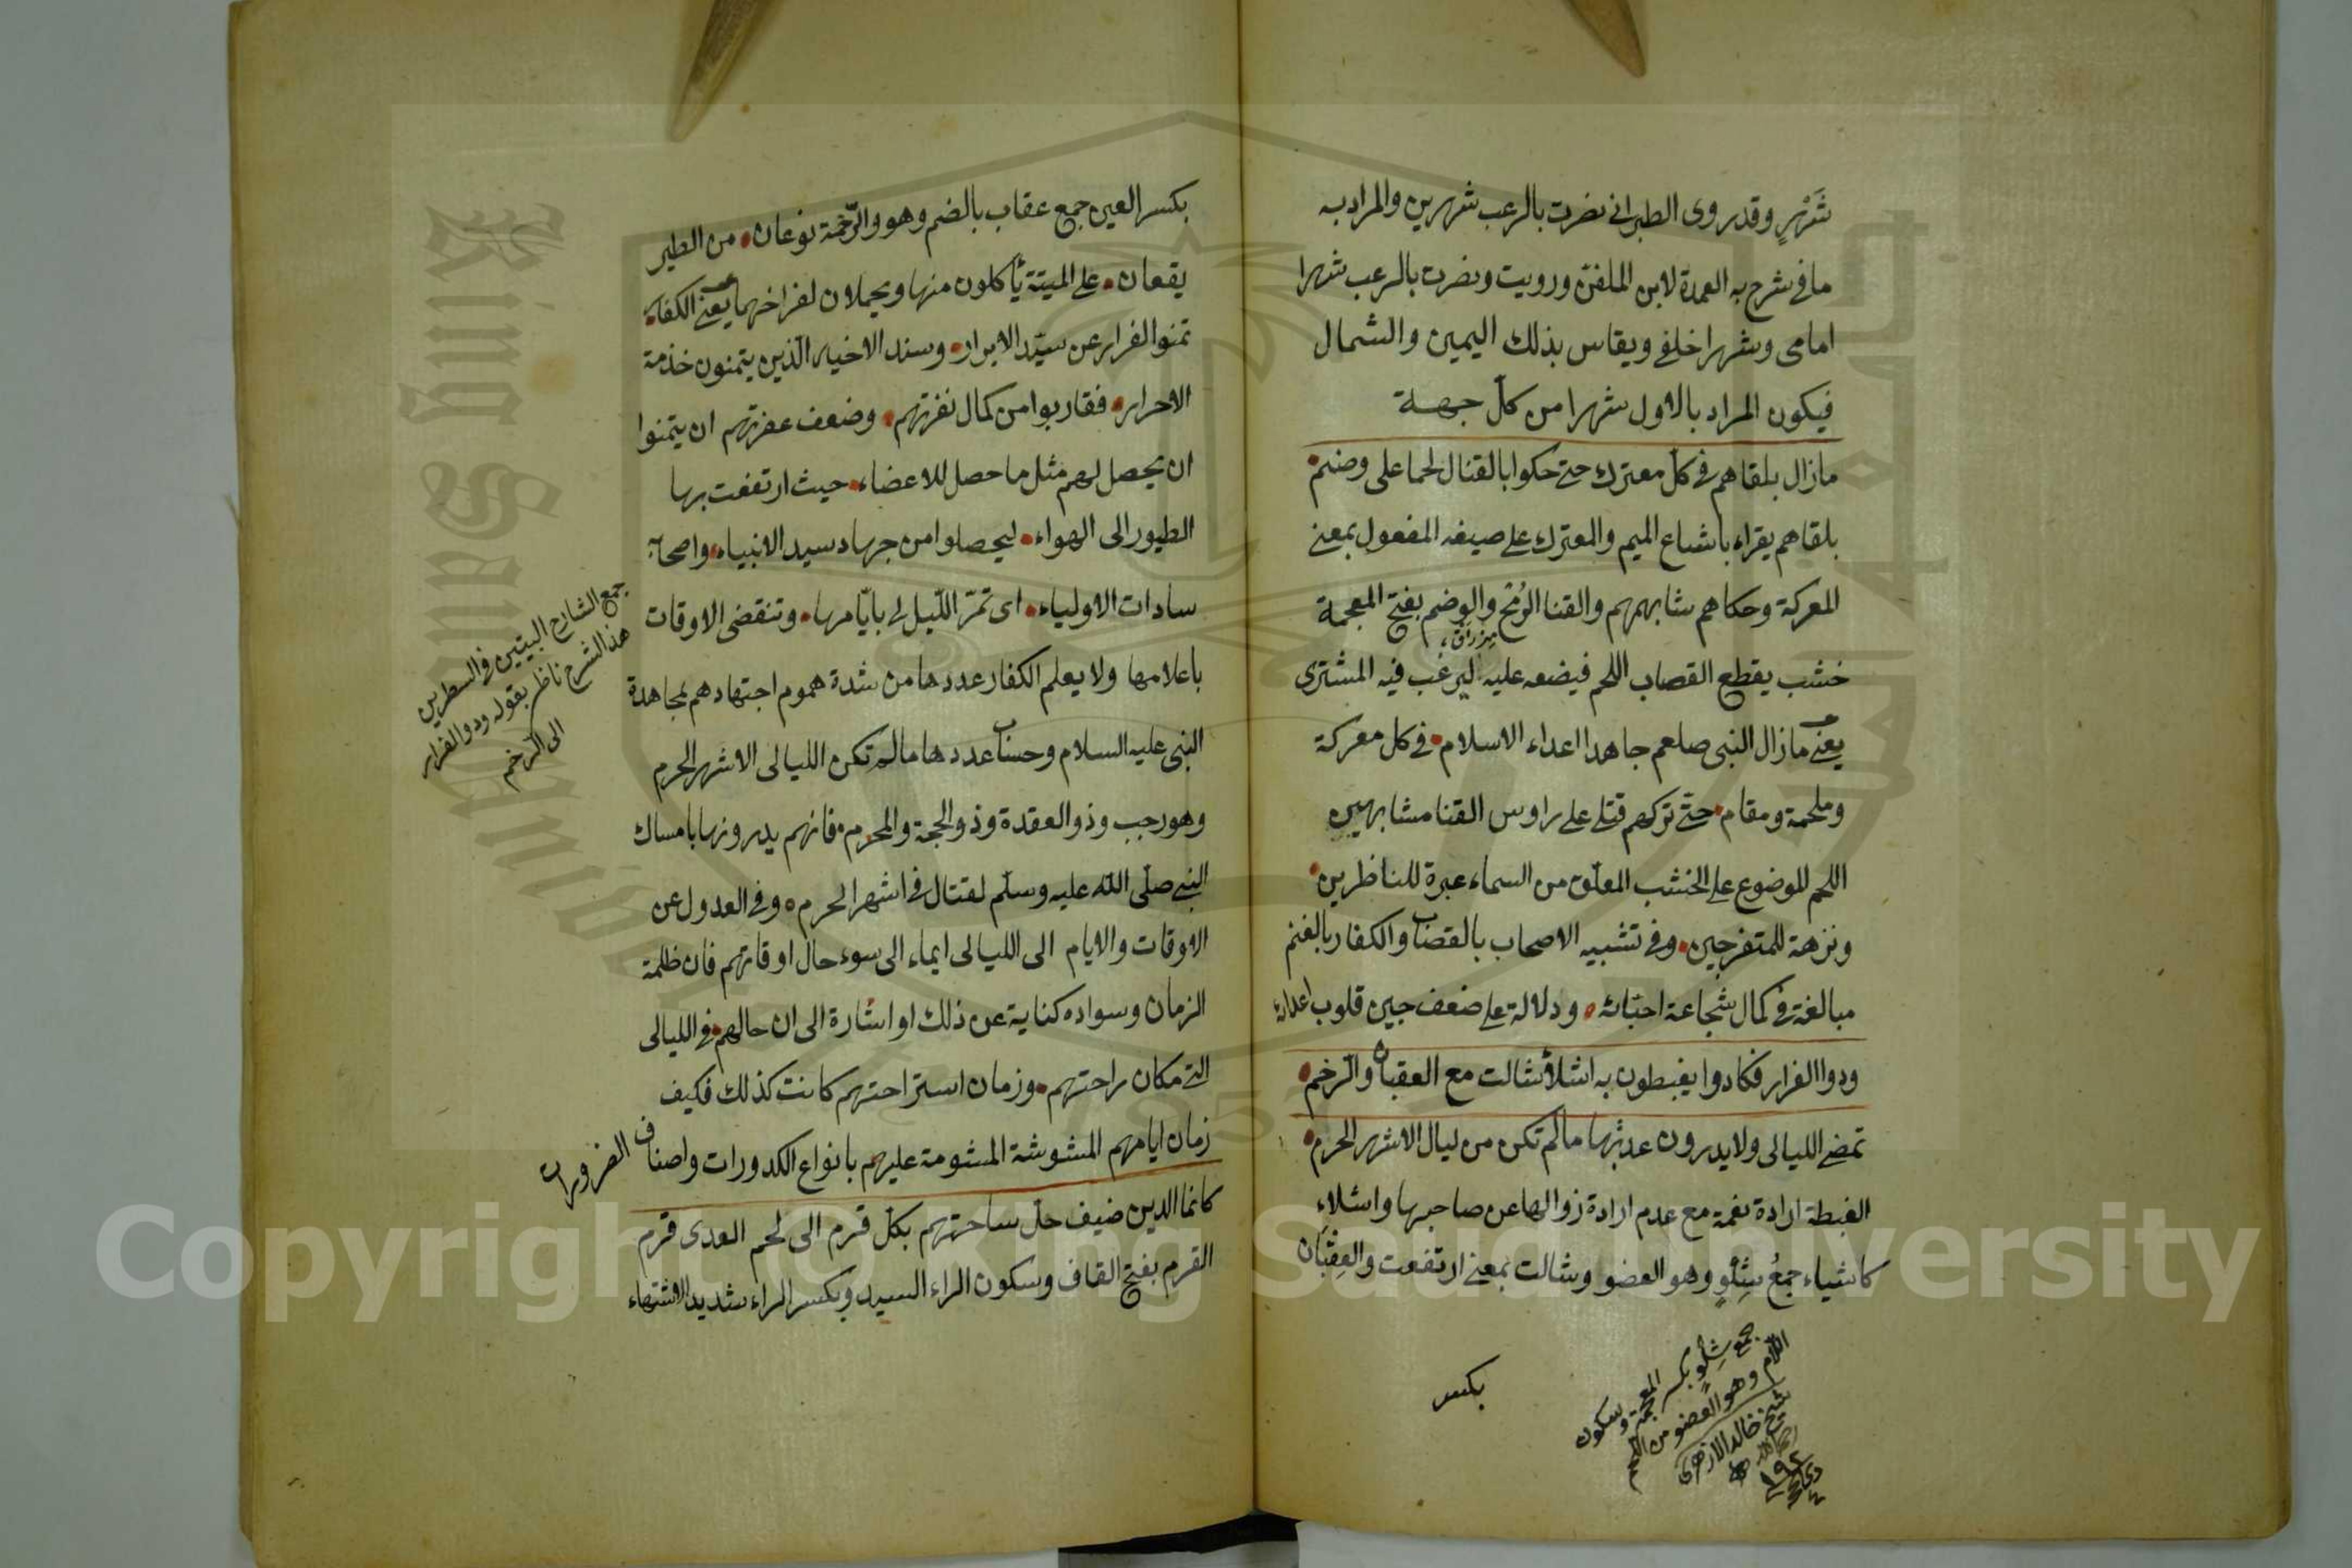 شَهْرٍ وقد روى الطبراني نصرت بالرعب شهرين والمراد به
ما في شرح به العمدة لابن الملقن ورويت ونصرت بالرعب شهرا
امامى وشهرا خلفي ويقاس بذلك اليمين والشمال
فيكون المراد بالاول شهرا من كلّ جهة
مازال يلقاهم في كلّ معترك حتى حكوا بالقنا لحما على وضم
يلقاهم يقراء باشباع الميم والمعترك على صيغه المفعول بمعنى
المعركة وحكاهم شابههم والقنا الرُمح والوضم بفتح المعجمة
مِزراق
خشب يقطع القصاب اللحم فيضعه عليه ليرغب فيه المشترى
يعنى مازال النبى صلعم جاهدا اعداء الاسلام في كل معركة
وملحمة ومقام حتّى تركهم قتلى على راوس القنا مشابهين
اللحم للوضوع على الخشب المعلّق من السماء عبرة للناظرين
ونزهة للمتفرجين وفي تشبيه الاصحاب بالقصاب والكفار بالغنم
مبالغة في كمال شجاعة احبّائه ودلالة على ضعف جبن قلوب اعدائه
ودوا الفرار فكادوا يغبطون به اشلأ شالت مع العقبان والرّخم
تمضى الليالى ولا يدرون عدتها مالم تكن من ليال الاشهر الحرم
الغبطة ارادة نعمة مع عدم ارادة زوالها عن صاحبها واشلاء
كاشياء جمعُ شِلْوٍ وهو العضو وشالت بمعنى ارتفعت والعِقْبَان
جمع شِلْوٍ بكسر المعجمة وسكون
اللام وهو العضو من اللحم
شيخ خالد الازهرى
بكسر
بكسر العين جمع عقاب بالضم وهو والرّخمة نوعان من الطير
يقعان على الميتة يأكلون منها ويحملان لفراخهما يعنى الكفار
تمنوا الفرار عن سيّد الابرار وسند الاخيار الّذين يتمنون خدمة
الاحرار فقاربوا من كمال نفرتهم وضعف عفرتهم ان يتمنوا
ان يحصل لهم مثل ما حصل للاعضاء حيث ارتفعت بها
الطيور الى الهواء ليحصلوا من جهاد سيد الانبياء واصحابه
سادات الاولياء اى تمرّ اللّيالي بايّامها وتنقضى الاوقات
باعلامها ولا يعلم الكفار عددها من شدة هموم اجتهادهم لمجاهدة
النبى عليه السلام وحساب عددها مالم تكن الليالى الاشهر الحرم
وهو رجب وذو العقدة وذو الحجة والمحرم فانهم يدرونها بامساك
النبى صلّى اللّه عليه وسلّم لقتال في اشهر الحرم وفي العدول عن
الاوقات والايام الى الليالى ايماء الى سوء حال اوقاتهم فان ظلمة
الزمان وسواده كناية عن ذلك او اشارة الى ان حالهم في الليالى
التى مكان راحتهم وزمان استراحتهم كانت كذلك فكيف
زمان ايامهم المشوشة المشومة عليهم بانواع الكدورات واصناف الضرورات
كانما الدين ضيف حلّ ساحتهم بكلّ قرم الى لحم العدى قرم
القرم بفتح القاف وسكون الراء السيد وبكسر الراء شديد الاشتهاء
جمع الشارح البيتين في السطرين
هذا الشرح ناظر بقوله ودوا الفرار
الى الرّخم
Copyright © King Saud University